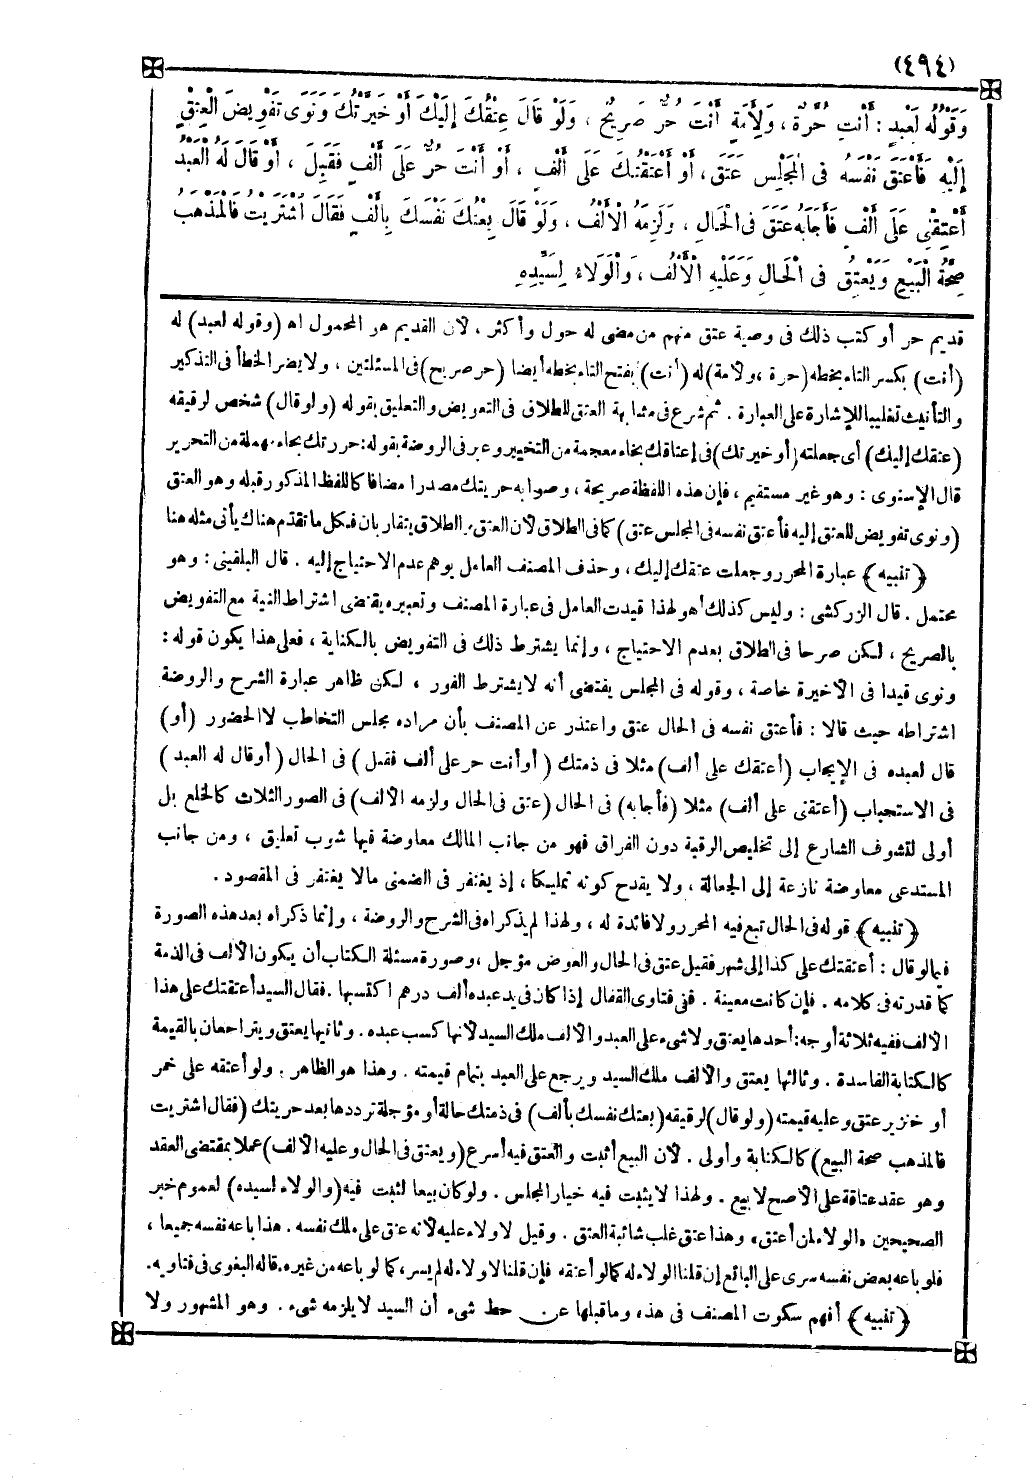 (٤٩٤)
وَقَوْلُهُ لَعْبدٍ : أَنْتِ حُرَّةٌ ، وَلِأَمَةٍ أَنْتَ حُرٌّ صَرِيحٌ ، وَلَوْ قَالَ عِتْقُكَ إِلَيْكَ أَوْ خَيَّرْتُكَ وَنَوَى تَفْوِيضَ الْعِتْقِ
إِلَيْهِ فَأَعْتَقَ نَفْسَهُ فى الْمَجْلِسِ عَتَقَ ، أَوْ أَعْتَقْتُكَ عَلَى أَلْفٍ ، أَوْ أَنْتَ حُرٌّ عَلَى أَلْفٍ فَقَبِلَ ، أَوْ قَالَ لَهُ الْعَبْدُ
أَعْتِقْنِى عَلَى أَلْفٍ فَأَجَابَهُ عَتَقَ فى الْحَالِ ، وَلَزِمَهُ الْأَلْفُ ، وَلَوْ قَالَ بِعْتُكَ نَفْسَكَ بِأَلْفٍ فَقَالَ اشْتَرَيْتُ فَالْمَذْهَبُ
صِحَّةُ الْبَيْعِ وَيَعْتِقُ فى الْحَالِ وَعَلَيْهِ الْأَلْفُ ، وَالْوَلَاءُ لِسَيِّدِهِ
قديم حر أو كتب ذلك فى وصية عتق منهم من مضى له حول وأكثر ، لأن القديم هو المحمول اه (وقوله لعبد) له
(أنت) بكسر التاء بخطه (حرة ، ولأمة) له (أنت) بفتح التاء بخطه أيضا (حر صريح) فى المسئلتين ، ولا يضر الخطأ فى التذكير
والتأنيث تغليبا للإشارة على العبارة . ثم شرع فى مشابهة العتق للطلاق فى التعويض والتعليق بقوله (ولو قال) شخص لرقيقه
(عتقك إليك) أى جعلته (أو خيرتك) فى إعتاقك بخاء معجمة من التخيير وعبر فى الروضة بقوله : حررتك بحاء مهملة من التحرير
قال الإسنوى : وهو غير مستقيم ، فإن هذه اللفظة صريحة ، وصوابه حريتك مصدرا مضافا كاللفظ المذكور قبله وهو العتق
(ونوى تفويض للعتق إليه فأعتق نفسه فى المجلس عتق) كما فى الطلاق لأن العتق والطلاق يتقاربان فكل ما تقدم هناك يأتى مثله هنا
﴿تنبيه﴾ عبارة المحرر وجعلت عتقك إليك ، وحذف المصنف العامل يوهم عدم الاحتياج إليه . قال البلقينى : وهو
محتمل . قال الزركشى : وليس كذلك أهو لهذا قيدت العامل فى عبارة المصنف وتعبيره يقتضى اشتراط النية مع التفويض
بالصريح ، لكن صرحا فى الطلاق بعدم الاحتياج ، وإنما يشترط ذلك فى التفويض بالكناية ، فعلى هذا يكون قوله :
ونوى قيدا فى الأخيرة خاصة ، وقوله فى المجلس يقتضى أنه لا يشترط الفور ، لكن ظاهر عبارة الشرح والروضة
اشتراطه حيث قالا : فأعتق نفسه فى الحال عتق واعتذر عن المصنف بأن مراده مجلس التخاطب لا الحضور (أو)
قال لعبده فى الإيجاب (أعتقك على ألف) مثلا فى ذمتك (أو أنت حر على ألف فقبل) فى الحال (أو قال له العبد)
فى الاستيجاب (أعتقنى على ألف) مثلا (فأجابه) فى الحال (عتق فى الحال ولزمه الألف) فى الصور الثلاث كالخلع بل
أولى لتشوف الشارع إلى تخليص الرقبة دون الفراق فهو من جانب المالك معاوضة فيها شوب تعليق ، ومن جانب
المستدعى معاوضة نازعة إلى الجعالة ، ولا يقدح كونه تمليكا ، إذ يغتفر فى الضمنى مالا يغتفر فى المقصود .
﴿تنبيه﴾ قوله فى الحال تبع فيه المحرر ولا فائدة له ، ولهذا لم يذكراه فى الشرح والروضة ، وإنما ذكراه بعد هذه الصورة
فيما لو قال : أعتقتك على كذا إلى شهر فقبل عتق فى الحال والعوض مؤجل ، وصورة مسئلة الكتاب أن يكون الألف فى الذمة
كما قدرته فى كلامه . فإن كانت معينة . ففى فتاوى القفال إذا كان فى يد عبده ألف درهم اكتسبها . فقال السيد أعتقتك على هذا
الألف ففيه ثلاثة أوجه : أحدها يعتق ولا شىء على العبد والألف ملك السيد لأنها كسب عبده . وثانيها يعتق ويتراجعان بالقيمة
كالكتابة الفاسدة . وثالثها يعتق والألف ملك السيد ويرجع على العبد بتمام قيمته . وهذا هو الظاهر . ولو أعتقه على خمر
أو خنزير عتق وعليه قيمته (ولو قال) لرقيقه (بعتك نفسك بألف) فى ذمتك حالة أو مؤجلة ترددها بعد حريتك (فقال اشتريت
فالمذهب صحة البيع) كالكتابة وأولى . لأن البيع أثبت والعتق فيه أسرع (ويعتق فى الحال وعليه الألف) عملا بمقتضى العقد
وهو عقد عتاقة على الأصح لا بيع . ولهذا لا يثبت فيه خيار المجلس . ولو كان بيعا لثبت فيه (والولاء لسيده) لعموم خبر
الصحيحين «الولاء لمن أعتق» وهذا عتق غلب شائبة العتق . وقيل لا ولاء عليه لأنه عتق على ملك نفسه . هذا باعه نفسه جميعا ،
فلو باعه بعض نفسه سرى على البائع إن قلنا الولاء له كما لو أعتقه فإن قلنا لا ولاء له لم يسر ، كما لو باعه من غيره . قاله البغوى فى فتاويه .
﴿تنبيه﴾ أفهم سكوت المصنف فى هذه وما قبلها عن حط شىء أن السيد لا يلزمه شىء . وهو المشهور ولا